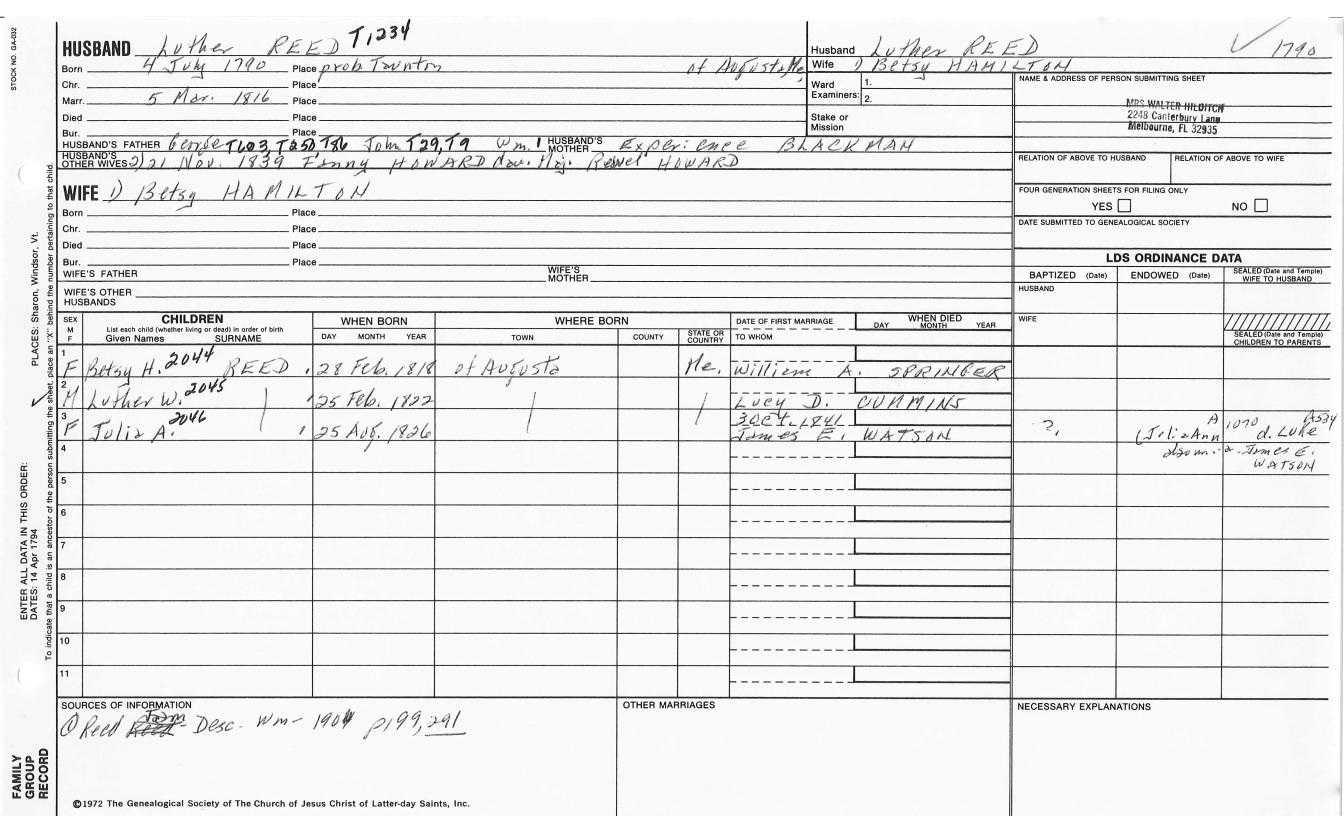 STOCK NO. GA-002
HUSBAND Luther REED T1234
Born 4 July 1790 Place prob Taunton of Augusta, Me.
Chr. Place
Marr. 5 Mar. 1816 Place
Died Place
Bur. Place
HUSBAND'S FATHER George T603, T250, T86, John T29, T9 Wm.1 HUSBAND'S MOTHER Experience BLACKMAN
HUSBAND'S OTHER WIVES 2) 21 Nov. 1839 Fanny HOWARD dau. Maj. HOWARD
Husband Luther REED 1790
Wife 1) Betsy HAMILTON
Ward Examiners: 1.
2.
Stake or Mission
NAME & ADDRESS OF PERSON SUBMITTING SHEET
MRS WALTER HILDITCH
2248 Canterbury Lane
Melbourne, FL 32935
RELATION OF ABOVE TO HUSBAND RELATION OF ABOVE TO WIFE
FOUR GENERATION SHEETS FOR FILING ONLY
YES NO
DATE SUBMITTED TO GENEALOGICAL SOCIETY
WIFE 1) Betsy HAMILTON
Born Place
Chr. Place
Died Place
Bur. Place
WIFE'S FATHER WIFE'S MOTHER
WIFE'S OTHER HUSBANDS
LDS ORDINANCE DATA
BAPTIZED (Date) ENDOWED (Date) SEALED (Date and Temple) WIFE TO HUSBAND
HUSBAND
WIFE
SEALED (Date and Temple) CHILDREN TO PARENTS
SEX M F CHILDREN WHEN BORN WHERE BORN DATE OF FIRST MARRIAGE WHEN DIED
List each child (whether living or dead) in order of birth
Given Names SURNAME DAY MONTH YEAR TOWN COUNTY STATE OR COUNTRY TO WHOM DAY MONTH YEAR
1 F Betsy H. 2044 REED 28 Feb. 1818 of Augusta Me. William A. SPRINGER
2 M Luther W. 2045 25 Feb. 1822 Lucy D. CUMMINS
3 F Julia A. 2046 25 Aug. 1826 3 Oct. 1841 James E. WATSON ?, (Julia Ann A 1070 d. Luke A534
4 also m. a James E. WATSON
5
6
7
8
9
10
11
SOURCES OF INFORMATION
① Reed Desc. Wm- 1901 p199, 291
OTHER MARRIAGES
NECESSARY EXPLANATIONS
©1972 The Genealogical Society of The Church of Jesus Christ of Latter-day Saints, Inc.
FAMILY GROUP RECORD
ENTER ALL DATA IN THIS ORDER:
DATES: 14 Apr 1794
PLACES: Sharon, Windsor, Vt.
To indicate that a child is an ancestor of the person submitting the sheet, place an "X" behind the number pertaining to that child.